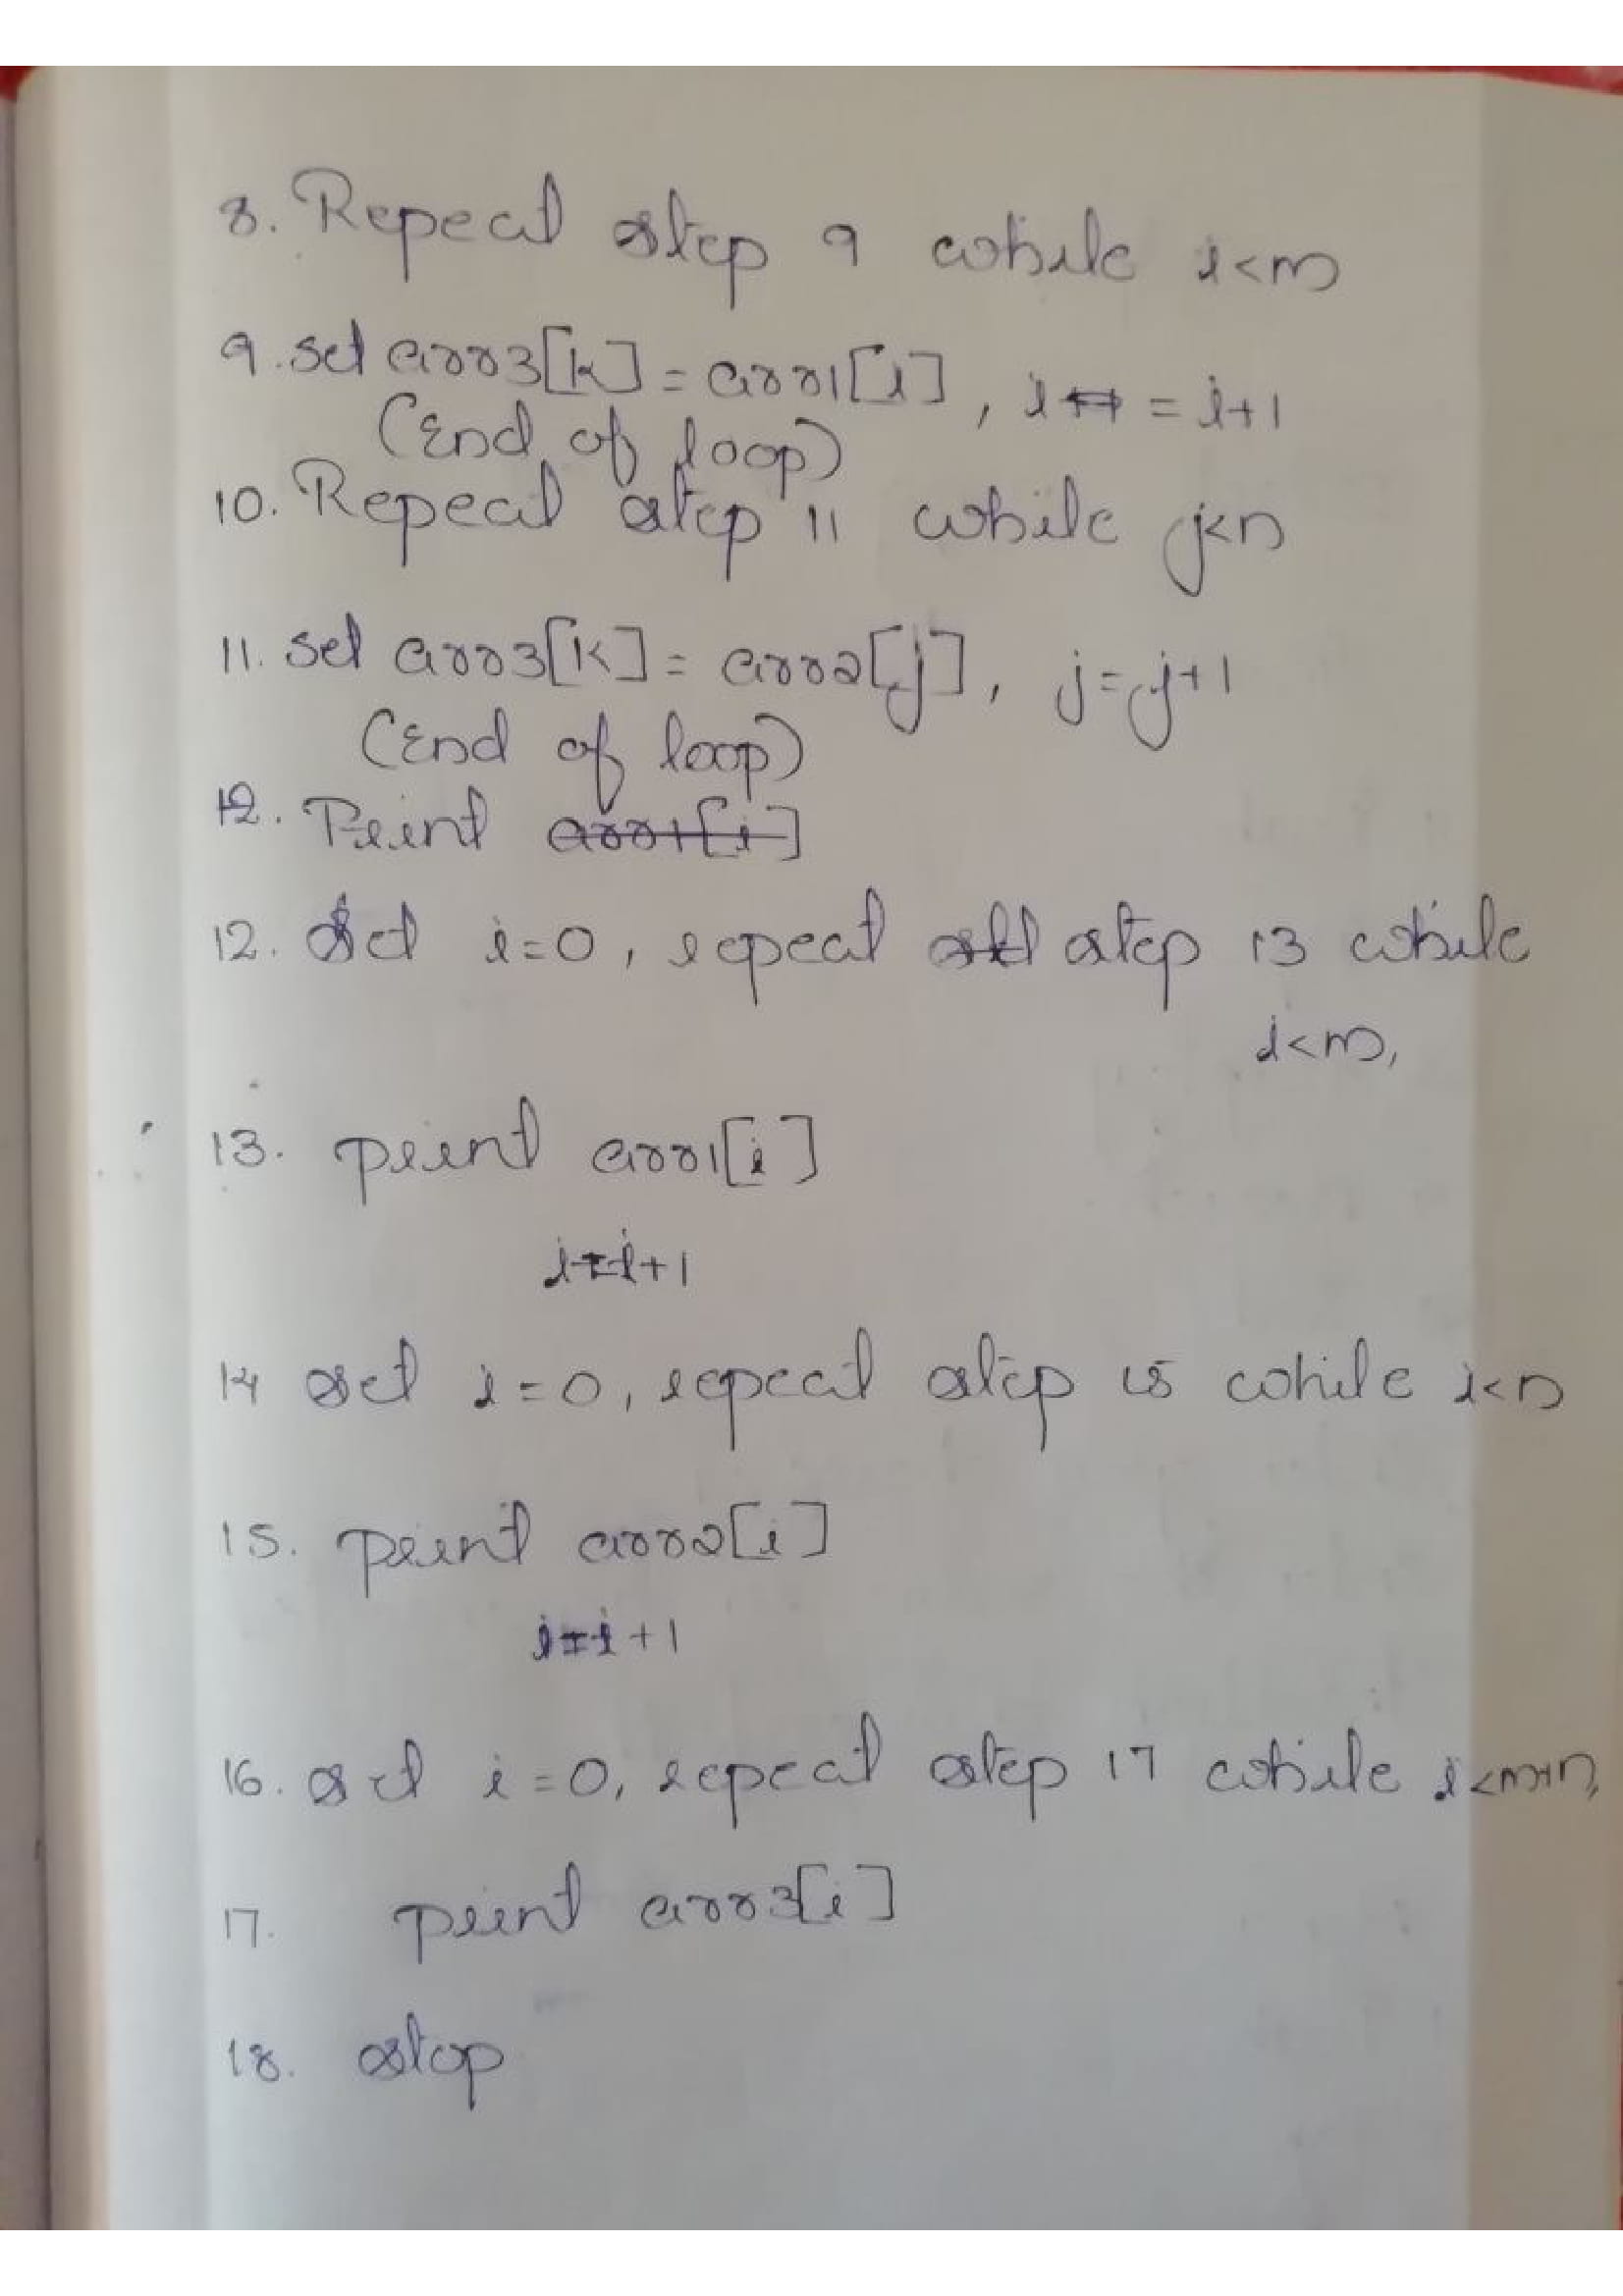 8. Repeat step 9 while i<m
9. set arr3[k] = arr1[i], i = i+1
(End of loop)
10. Repeat step 11 while j<n
11. set arr3[k] = arr2[j], j=j+1
(End of loop)
12. Print arr1[i]
12. Set i=0, repeat step 13 while
i<m,
13. print arr1[i]
i=i+1
14 set i=0, repeat step 15 while i<n
15. print arr2[i]
i=i+1
16. set i=0, repeat step 17 while i<m+n,
17. print arr3[i]
18. stop